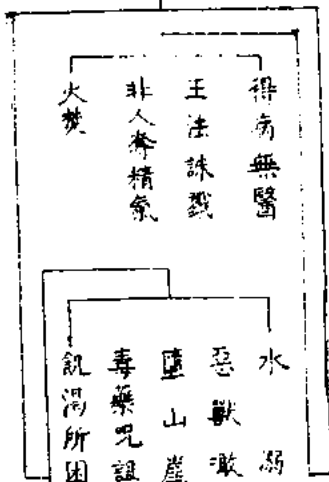 得病無醫
王法誅戮
非人奪精氣
火焚
水溺
惡獸噉
墮山崖
毒藥咒詛
飢渴所困